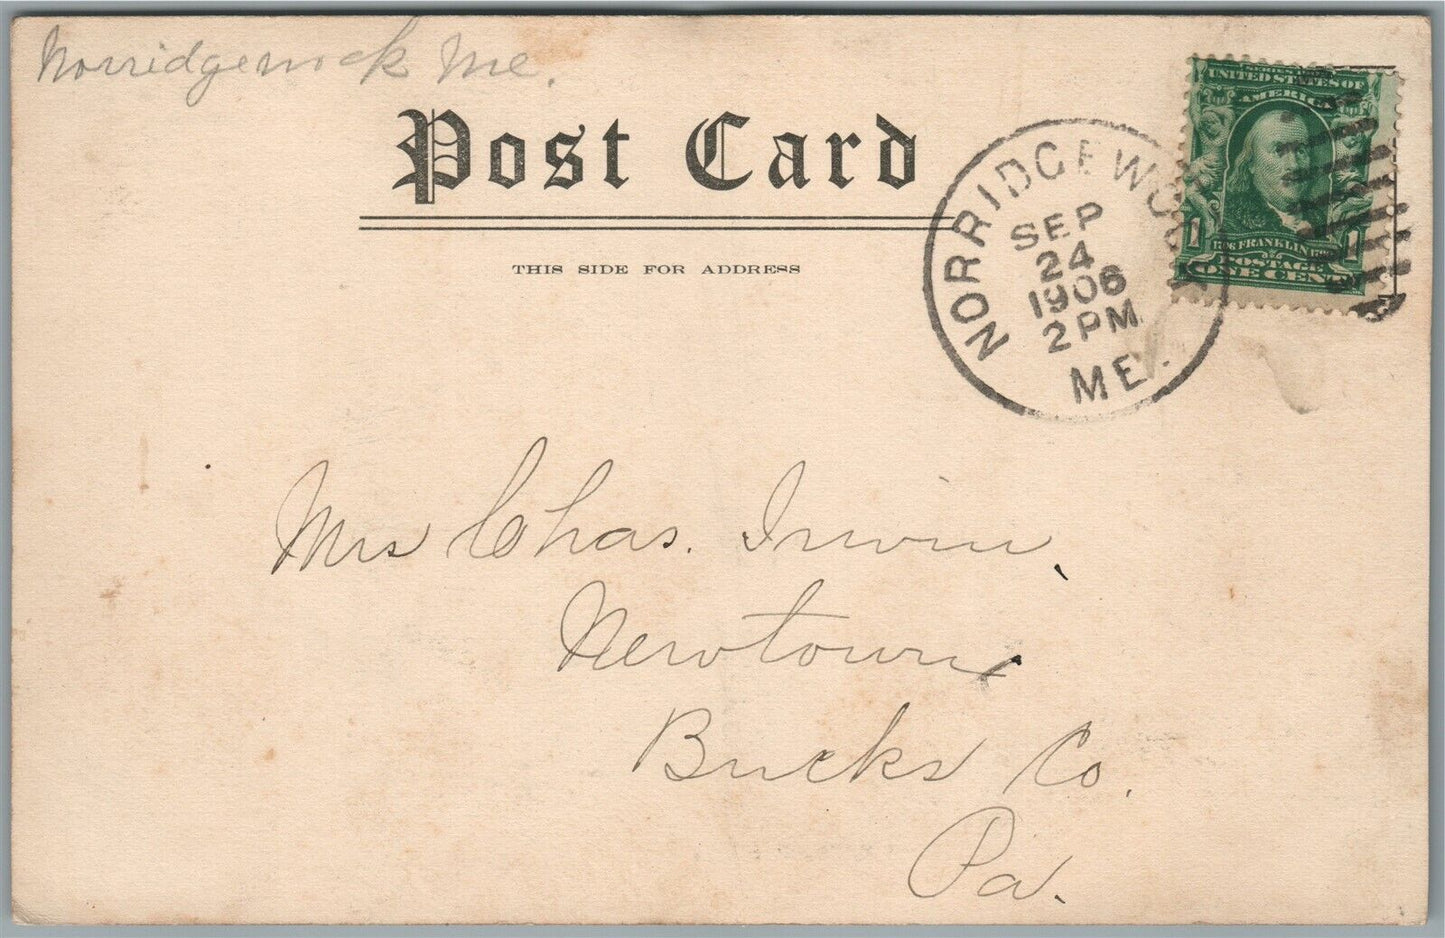 Norridgewock Me.
Post Card
THIS SIDE FOR ADDRESS
NORRIDGEWOCK
SEP
24
1906
2 PM
ME.
UNITED STATES OF
AMERICA
1 FRANKLIN 1
POSTAGE
ONE CENT
Mrs Chas. Irwin,
Newtown
Bucks Co.
Pa.